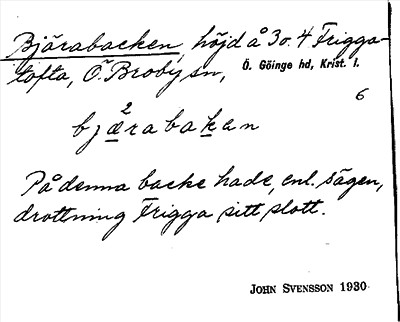 Bjärabacken, höjd å 3 o. 4 Frigga-
tofta, Ö. Broby sn, Ö. Göinge hd, Krist. l.
6
2
bjärabaken
På denna backe hade, enl. sägen,
drottning Frigga sitt slott.
JOHN SVENSSON 1930